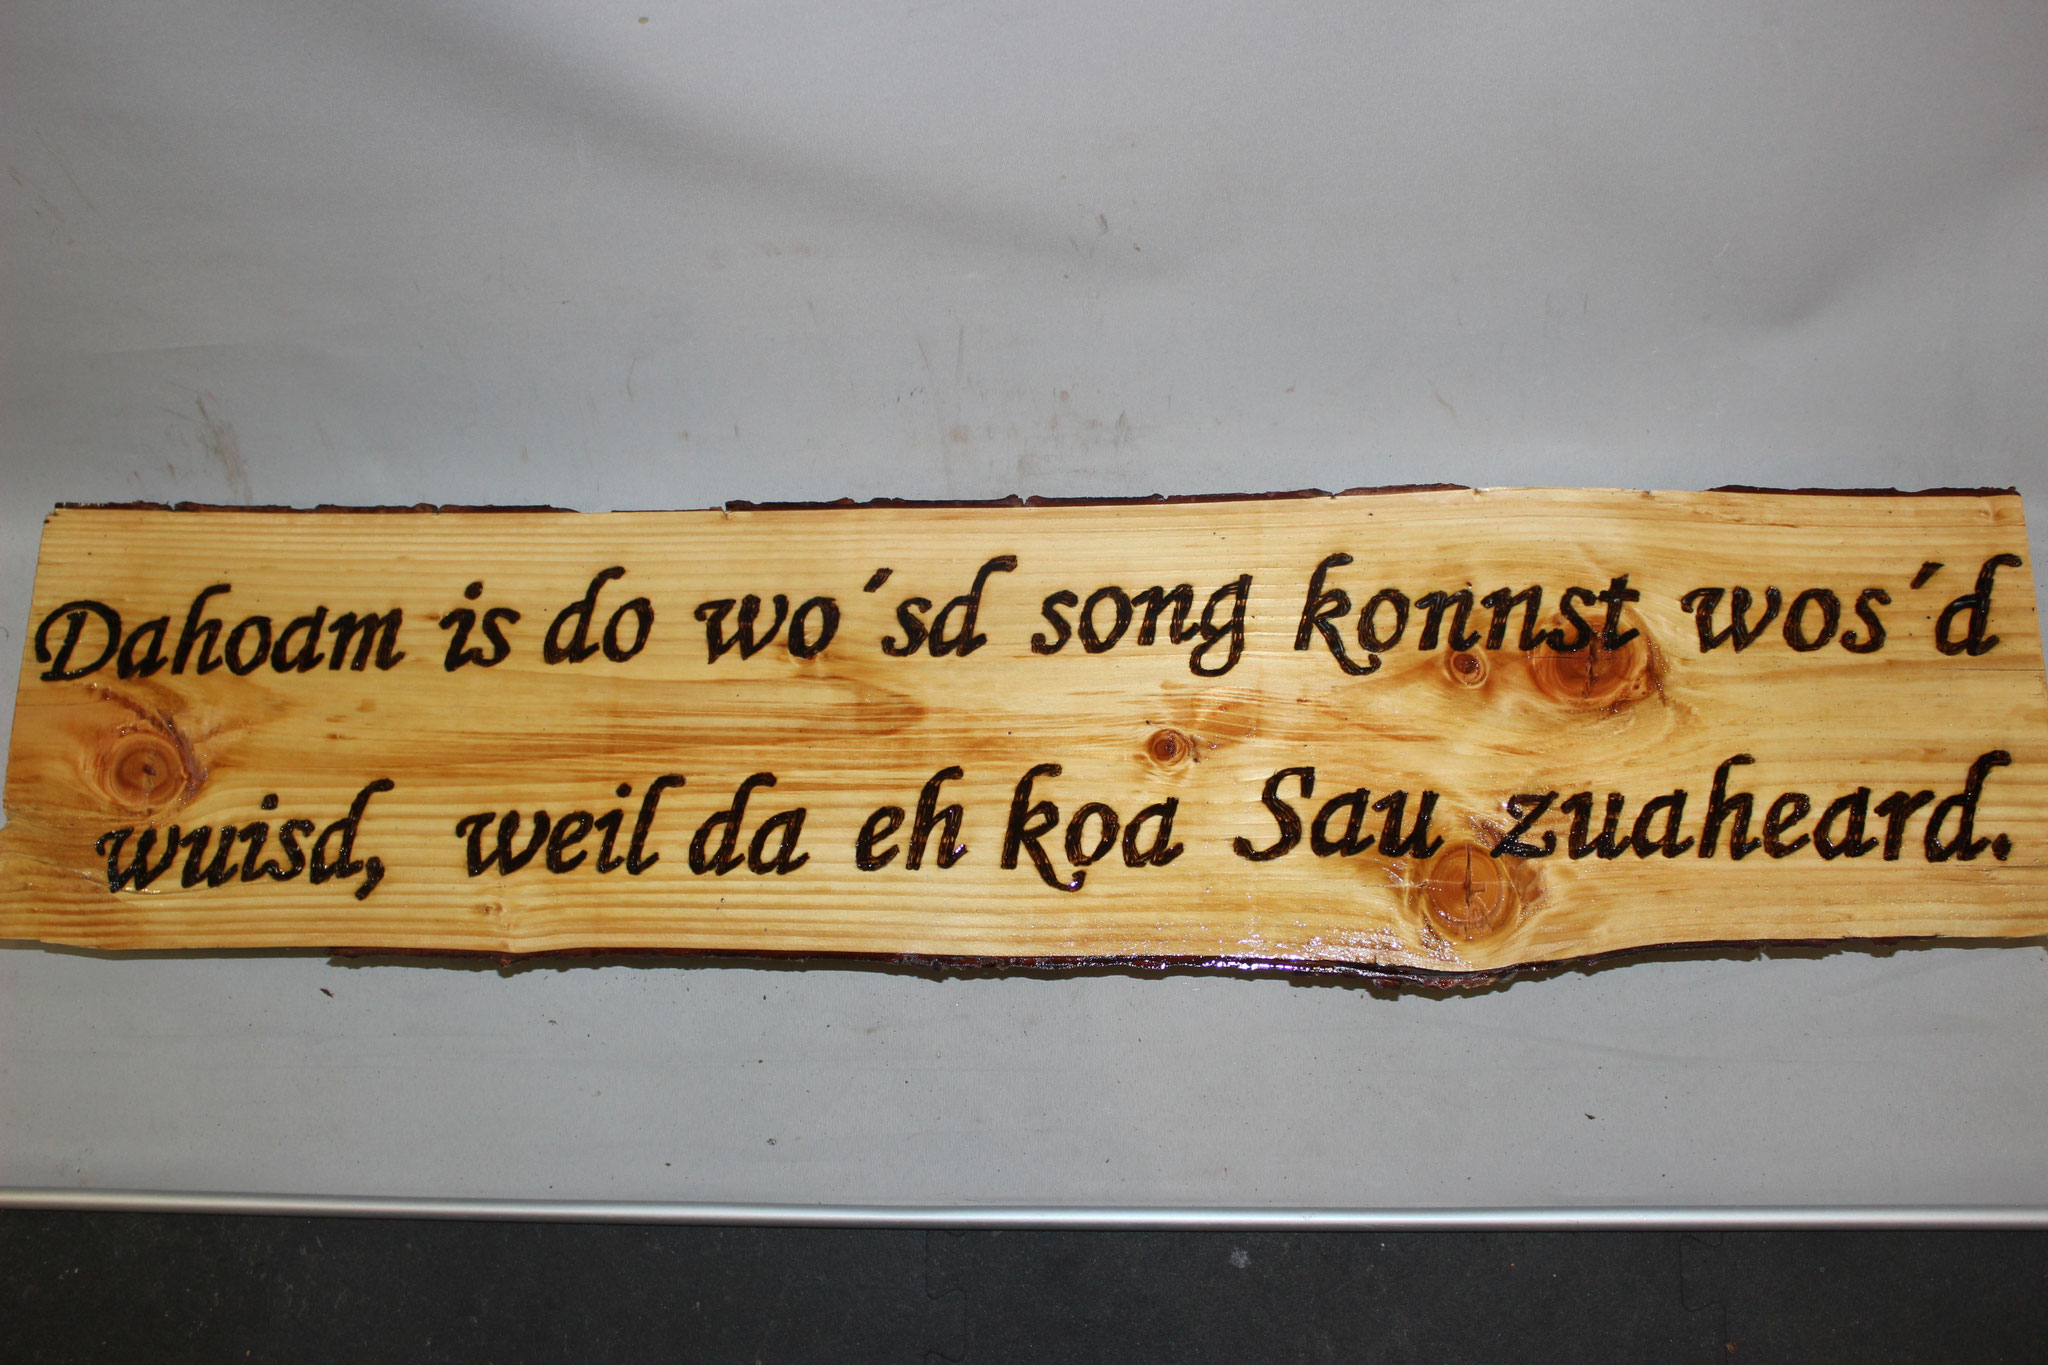 Dahoam is do wo´sd song konnst wos´d
wuisd, weil da eh koa Sau zuaheard.